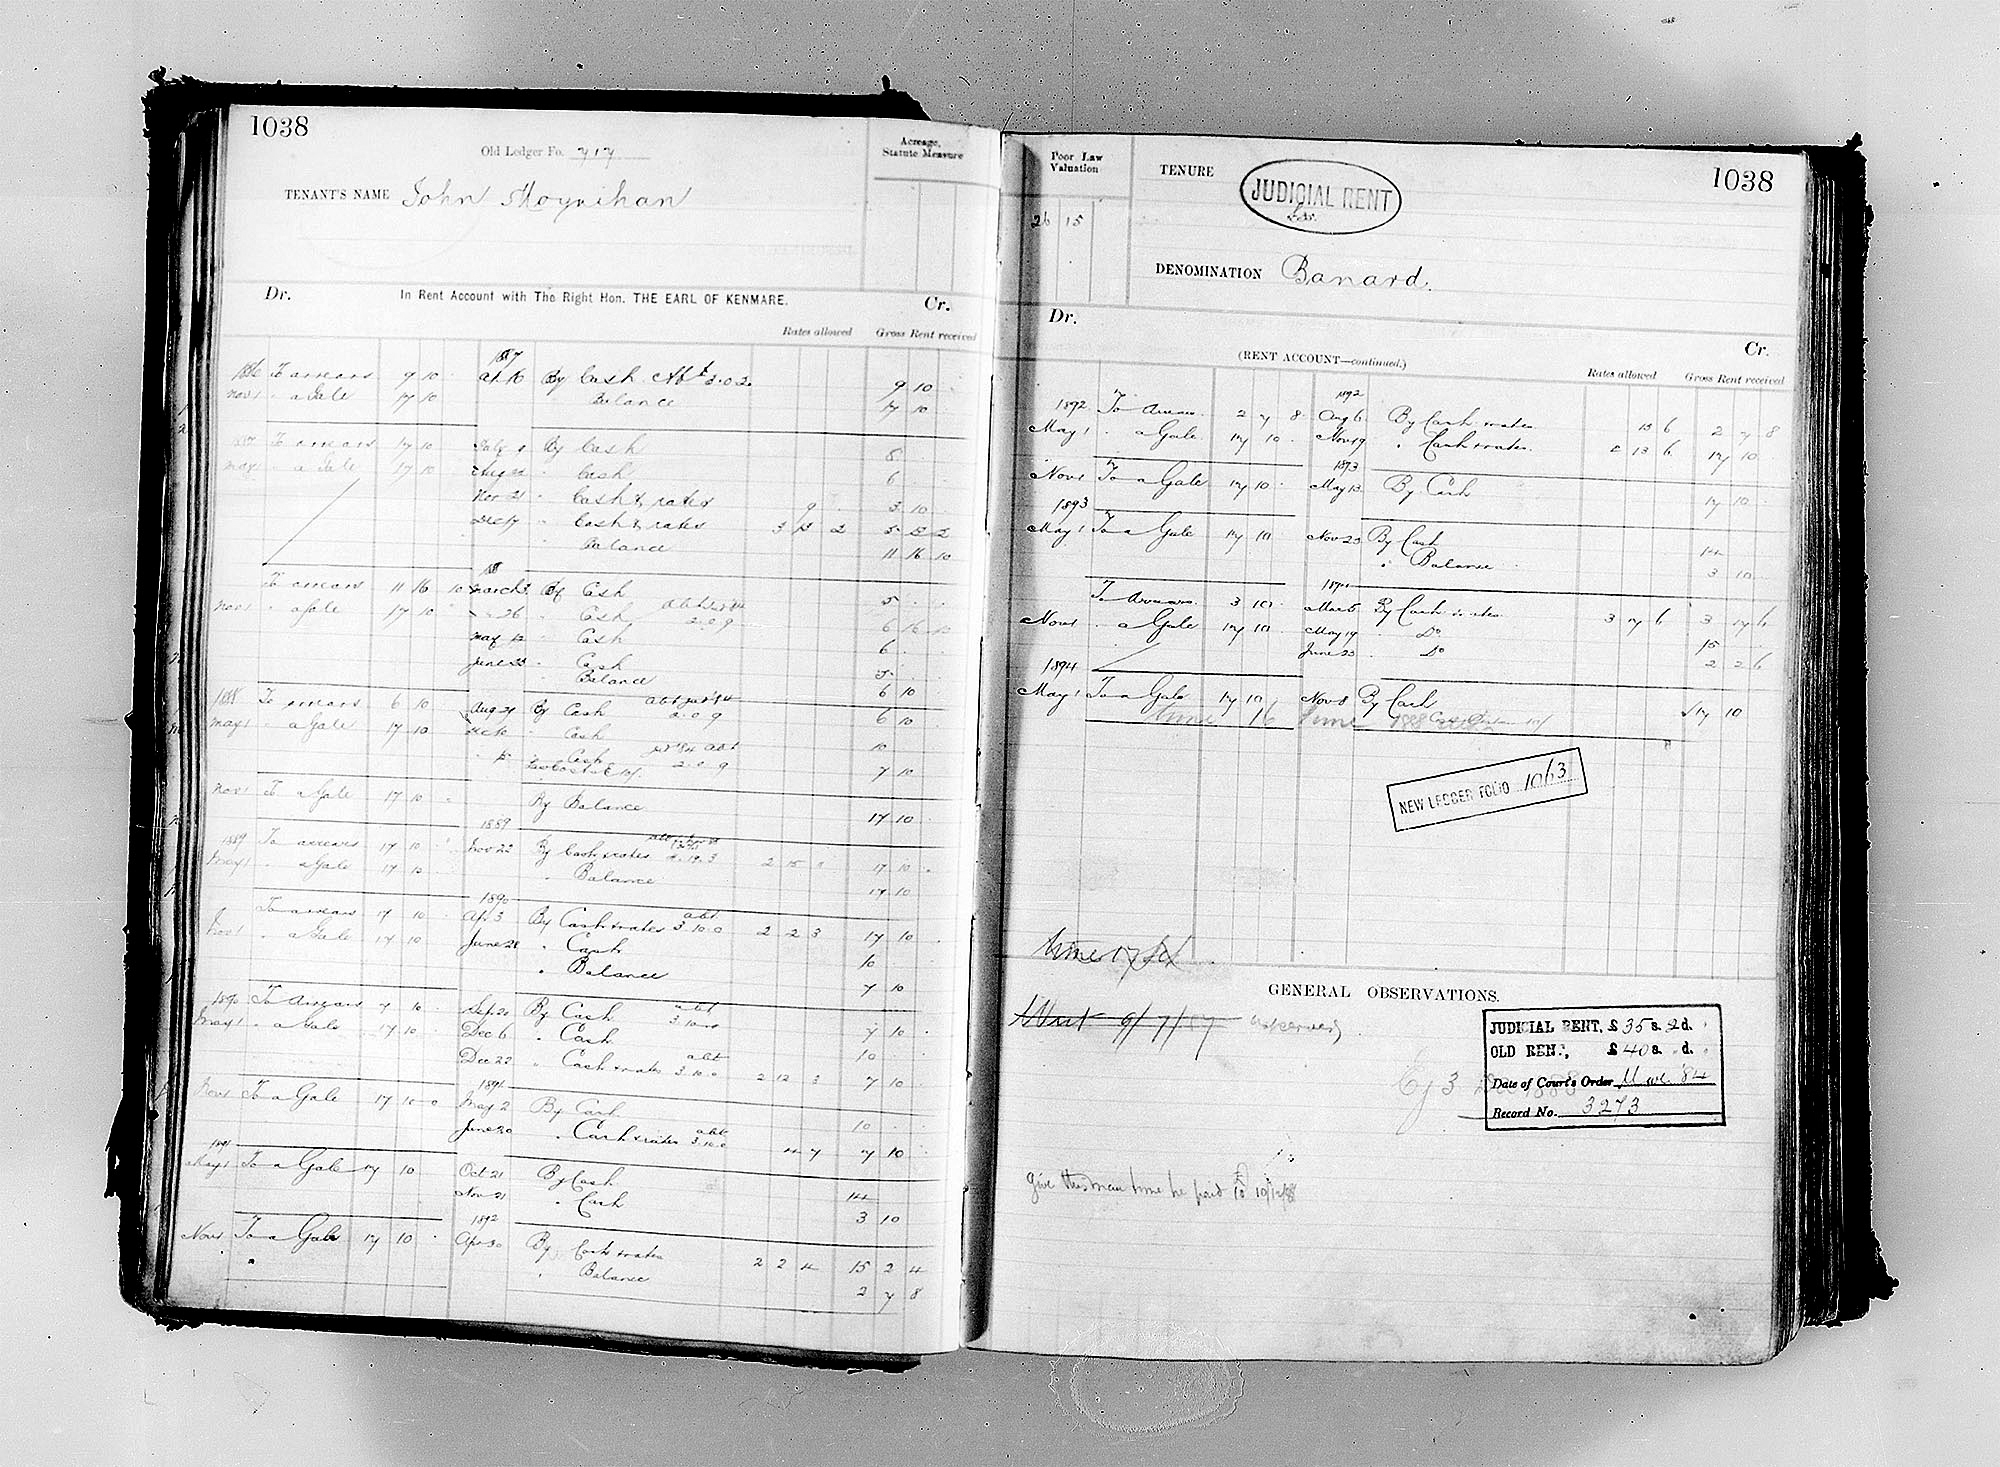 1038
Old Ledger Fo. 717
Acreage, Statute Measure
TENANT'S NAME John Moynihan
Dr. In Rent Account with The Right Hon. THE EARL OF KENMARE. Cr.
Rates allowed Gross Rent received
1887
To arrears 9 10 By Cash 9 10
Nov 1 " a Gale 17 10 Balance 17 10
1887 To arrears 17 10 By Cash
May 1 " a Gale 17 10 Aug Cash 6
Nov 21 " Cash & rates 9 3 10
" Cash & rates 3 2
Balance 11 16 10
To arrears 11 16 10 March By Cash 5
Nov 1 " a Gale 17 10 " 26 " Cash 2.0.9 6 16 10
May 12 " Cash 6
June 23 " Cash 5
Balance 6 10
1888 To arrears 6 10 Aug By Cash 2.0.9 6 10
May 1 " a Gale 17 10 " Cash 10
Cash 2.0.9 7 10
Nov 1 To a Gale 17 10 By Balance 17 10
1889
1889 To arrears 17 10 Nov 22 By Cash & rates 2 15 17 10
May 1 " a Gale 17 10 " Balance 17 10
1890
To arrears 17 10 Apr 3 By Cash & rates abt 3.10.0 2 2 3 17 10
Nov 1 " a Gale 17 10 June 28 " Cash 10
" Balance 7 10
1890 To Arrears 7 10 Sep 20 By Cash abt 3.10.0 7 10
May 1 " a Gale 17 10 Dec 6 " Cash 10
Dec 22 " Cash & rates abt 3.10.0 2 12 3 7 10
1891
Nov 1 To a Gale 17 10 0 May 2 By Cash 10
June 20 " Cash & rates abt 3.10.0 4 7 7 10
1891
May 1 To a Gale 17 10 Oct 21 By Cash 14
Nov 21 " Cash 3 10
1892
Nov 1 To a Gale 17 10 Apr 30 By Cash & rates 2 2 4 15 2 4
" Balance 2 7 8
Poor Law Valuation
26 15
TENURE JUDICIAL RENT
1038
DENOMINATION Banard.
Dr. (RENT ACCOUNT—continued.) Cr.
Rates allowed Gross Rent received
1892
1892 To Arrears 2 7 8 Aug 6 By Cash & rates 13 6 2 7 8
May 1 " a Gale 17 10 Nov 19 " Cash & rates 2 13 6 17 10
1893
Nov 1 To a Gale 17 10 May 13 By Cash 17 10
1893
May 1 To a Gale 17 10 Nov 23 By Cash 14
" Balance 3 10
1894
To Arrears 3 10 Mar 5 By Cash & rates 3 7 6 3 17 6
Nov 1 " a Gale 17 10 May 19 Do 15
June 23 Do 2 2 6
1894
May 1 To a Gale 17 10 Nov 8 By Cash 17 10
time 16 time
NEW LEDGER FOLIO 1063
GENERAL OBSERVATIONS.
Writ 9/7/87
Ej 3 Dec 1888
JUDICIAL RENT, £35 s. 2 d.
OLD RENT, £40 s. d.
Date of Court's Order '84
Record No. 3273
give this man time he paid £10 10/12/88